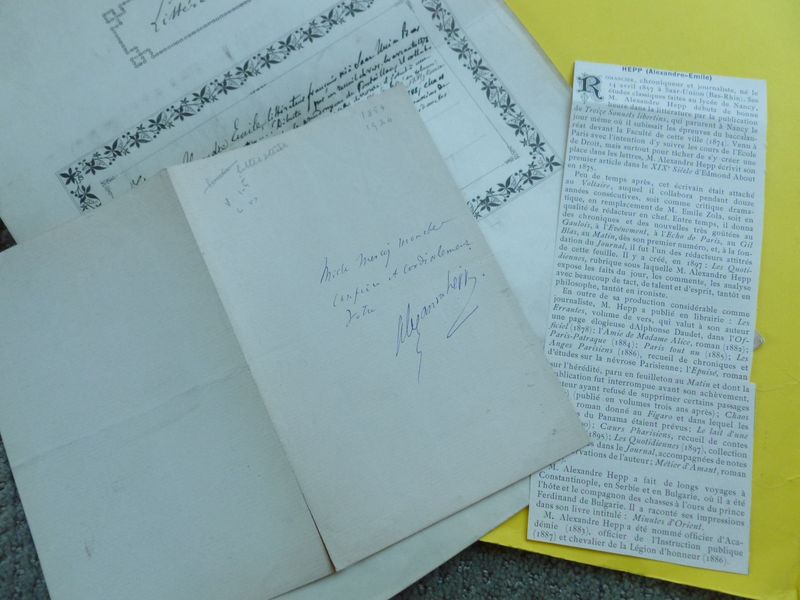 1857
1924
Mille Mercis mon cher
Confrère et cordialement
Votre
Alexandre Hepp.
HEPP (Alexandre-Emile)
ROMANCIER, chroniqueur et journaliste, né le
14 avril 1857 à Saar-Union (Bas-Rhin). Ses
études classiques faites au lycée de Nancy,
M. Alexandre Hepp, débuta de bonne
heure dans la littérature par la publication
de Treize Sonnets libertins, qui parurent à Nancy le
jour même où il subissait les épreuves du baccalau-
réat devant la Faculté de cette ville (1874). Venu à
Paris avec l'intention d'y suivre les cours de l'Ecole
de Droit, mais surtout pour tâcher de s'y créer une
place dans les lettres, M. Alexandre Hepp écrivit son
premier article dans le XIXe Siècle d'Edmond About
en 1875.
Peu de temps après, cet écrivain était attaché
au Voltaire, auquel il collabora pendant douze
années consécutives, soit comme critique drama-
tique, en remplacement de M. Emile Zola, soit en
qualité de rédacteur en chef. Entre temps, il donna
des chroniques et des nouvelles très goûtées au
Gaulois, à l'Evénement, à l'Echo de Paris, au Gil
Blas, au Matin, dès son premier numéro, et, à la fon-
dation du Journal, il fut l'un des rédacteurs attitrés
de cette feuille. Il y a créé, en 1897 : Les Quoti-
diennes, rubrique sous laquelle M. Alexandre Hepp
expose les faits du jour, les commente, les analyse
avec beaucoup de tact, de talent et d'esprit, tantôt en
philosophe, tantôt en ironiste.
En outre de sa production considérable comme
journaliste, M. Hepp a publié en librairie : Les
Errantes, volume de vers, qui valut à son auteur
une page élogieuse d'Alphonse Daudet, dans l'Of-
ficiel (1878); l'Amie de Madame Alice, roman (1882);
Paris-Patraque (1884); Paris tout nu (1885); Les
Anges Parisiens (1886), recueil de chroniques et
d'études sur la névrose Parisienne; l'Epuisé, roman
sur l'hérédité, paru en feuilleton au Matin et dont la
publication fut interrompue avant son achèvement,
auteur ayant refusé de supprimer certains passages
(publié en volumes trois ans après); Chaos
roman donné au Figaro et dans lequel les
du Panama étaient prévus; Le lait d'une
Cœurs Pharisiens, recueil de contes
1895); Les Quotidiennes (1897), collection
dans le Journal, accompagnées de notes
observations de l'auteur; Métier d'Amant, roman
M. Alexandre Hepp a fait de longs voyages à
Constantinople, en Serbie et en Bulgarie, où il a été
l'hôte et le compagnon des chasses à l'ours du prince
Ferdinand de Bulgarie. Il a raconté ses impressions
dans son livre intitulé : Minutes d'Orient.
M. Alexandre Hepp a été nommé officier d'Aca-
démie (1883), officier de l'Instruction publique
(1887) et chevalier de la Légion d'honneur (1886).